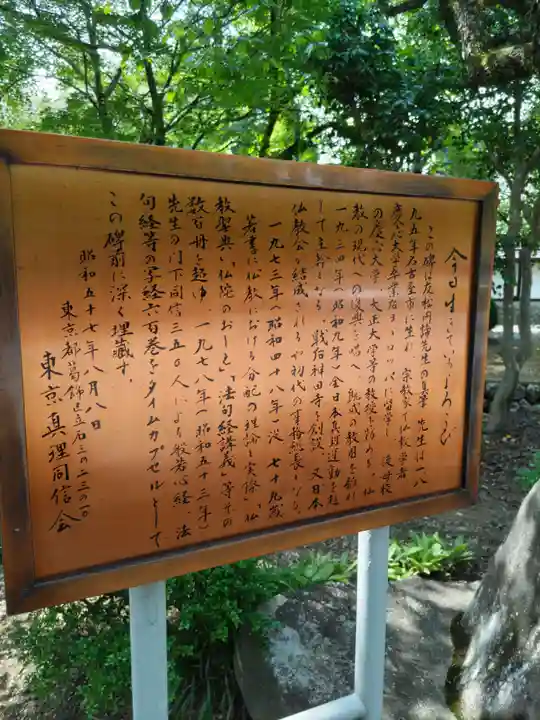 今日も生きていてよろこび
この碑は友松円諦先生の真筆 先生は一八
九五年名古屋市に生れ 宗教家で仏教学者
慶応大学卒業后ヨーロッパに留学し 後母校
の慶応大学 大正大学等の教授を務める 仏
教の現代への復興を唱へ 既成の教団を離れ
一九三四年(昭和九年)全日本真理運動を起
して主幹となる 戦后神田寺を創設 又日本
仏教会が結成されるや初代の事務総長となる
一九七三年(昭和四十八年)没 七十九歳
著書に仏教に於ける分配の理論と実際、「仏
教聖典」「仏陀のおしえ」「法句経講義」等その
数百冊を超ゆ 一九七八年(昭和五十三年)
先生の門下同信三五〇人により般若心経、法
句経等の写経六百巻をタイムカプセルとして
この碑前に深く埋蔵す。
昭和五十七年八月八日
東京都葛飾区立石三の二三の一〇
東京真理同信会